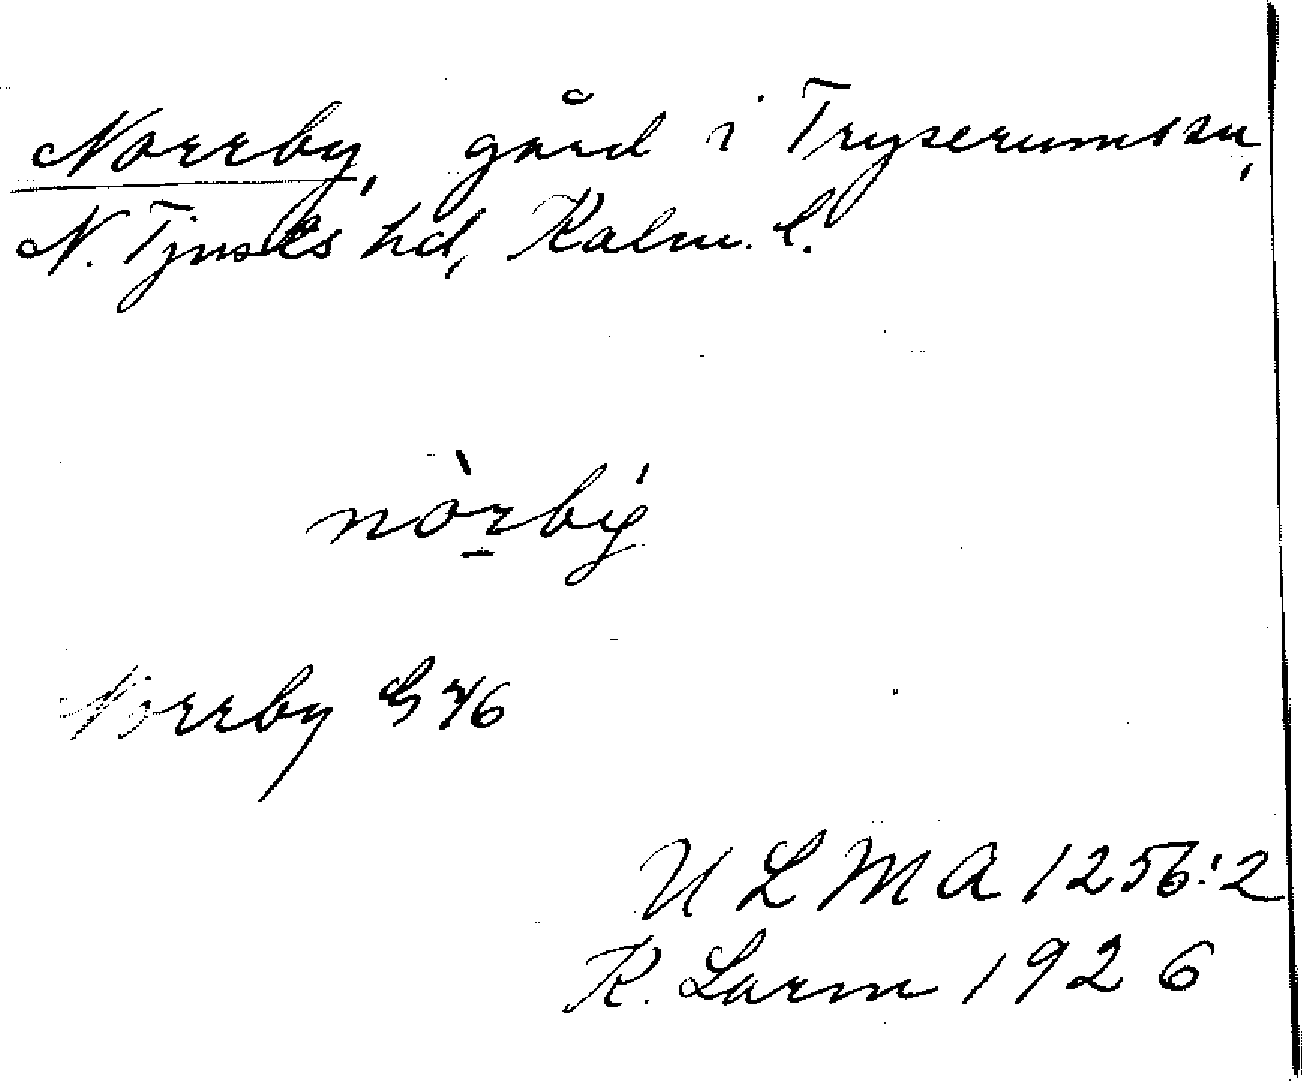 Norrby, gård i Tryserums sn,
N. Tjusts hd, Kalm. l.
nòrbý
Norrby G 46
ULMA 1256:2
K. Larm 1926